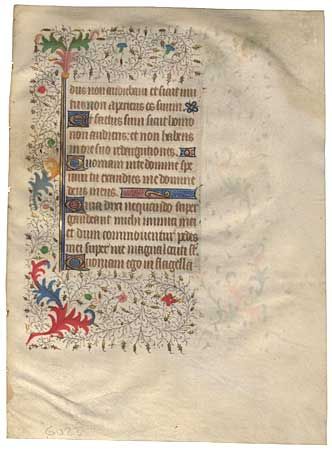 dus non audiebam et sicut mu
tus non aperiens os suum
Et factus sum sicut homo
non audiens et non habens
in ore suo redargutiones
Quoniam in te domine spe
raui tu exaudies me domine
deus meus
Quia dixi nequando super
gaudeant michi inimici mei
et dum commouentur pedes
mei super me magna locuti st
Quoniam ego in flagella